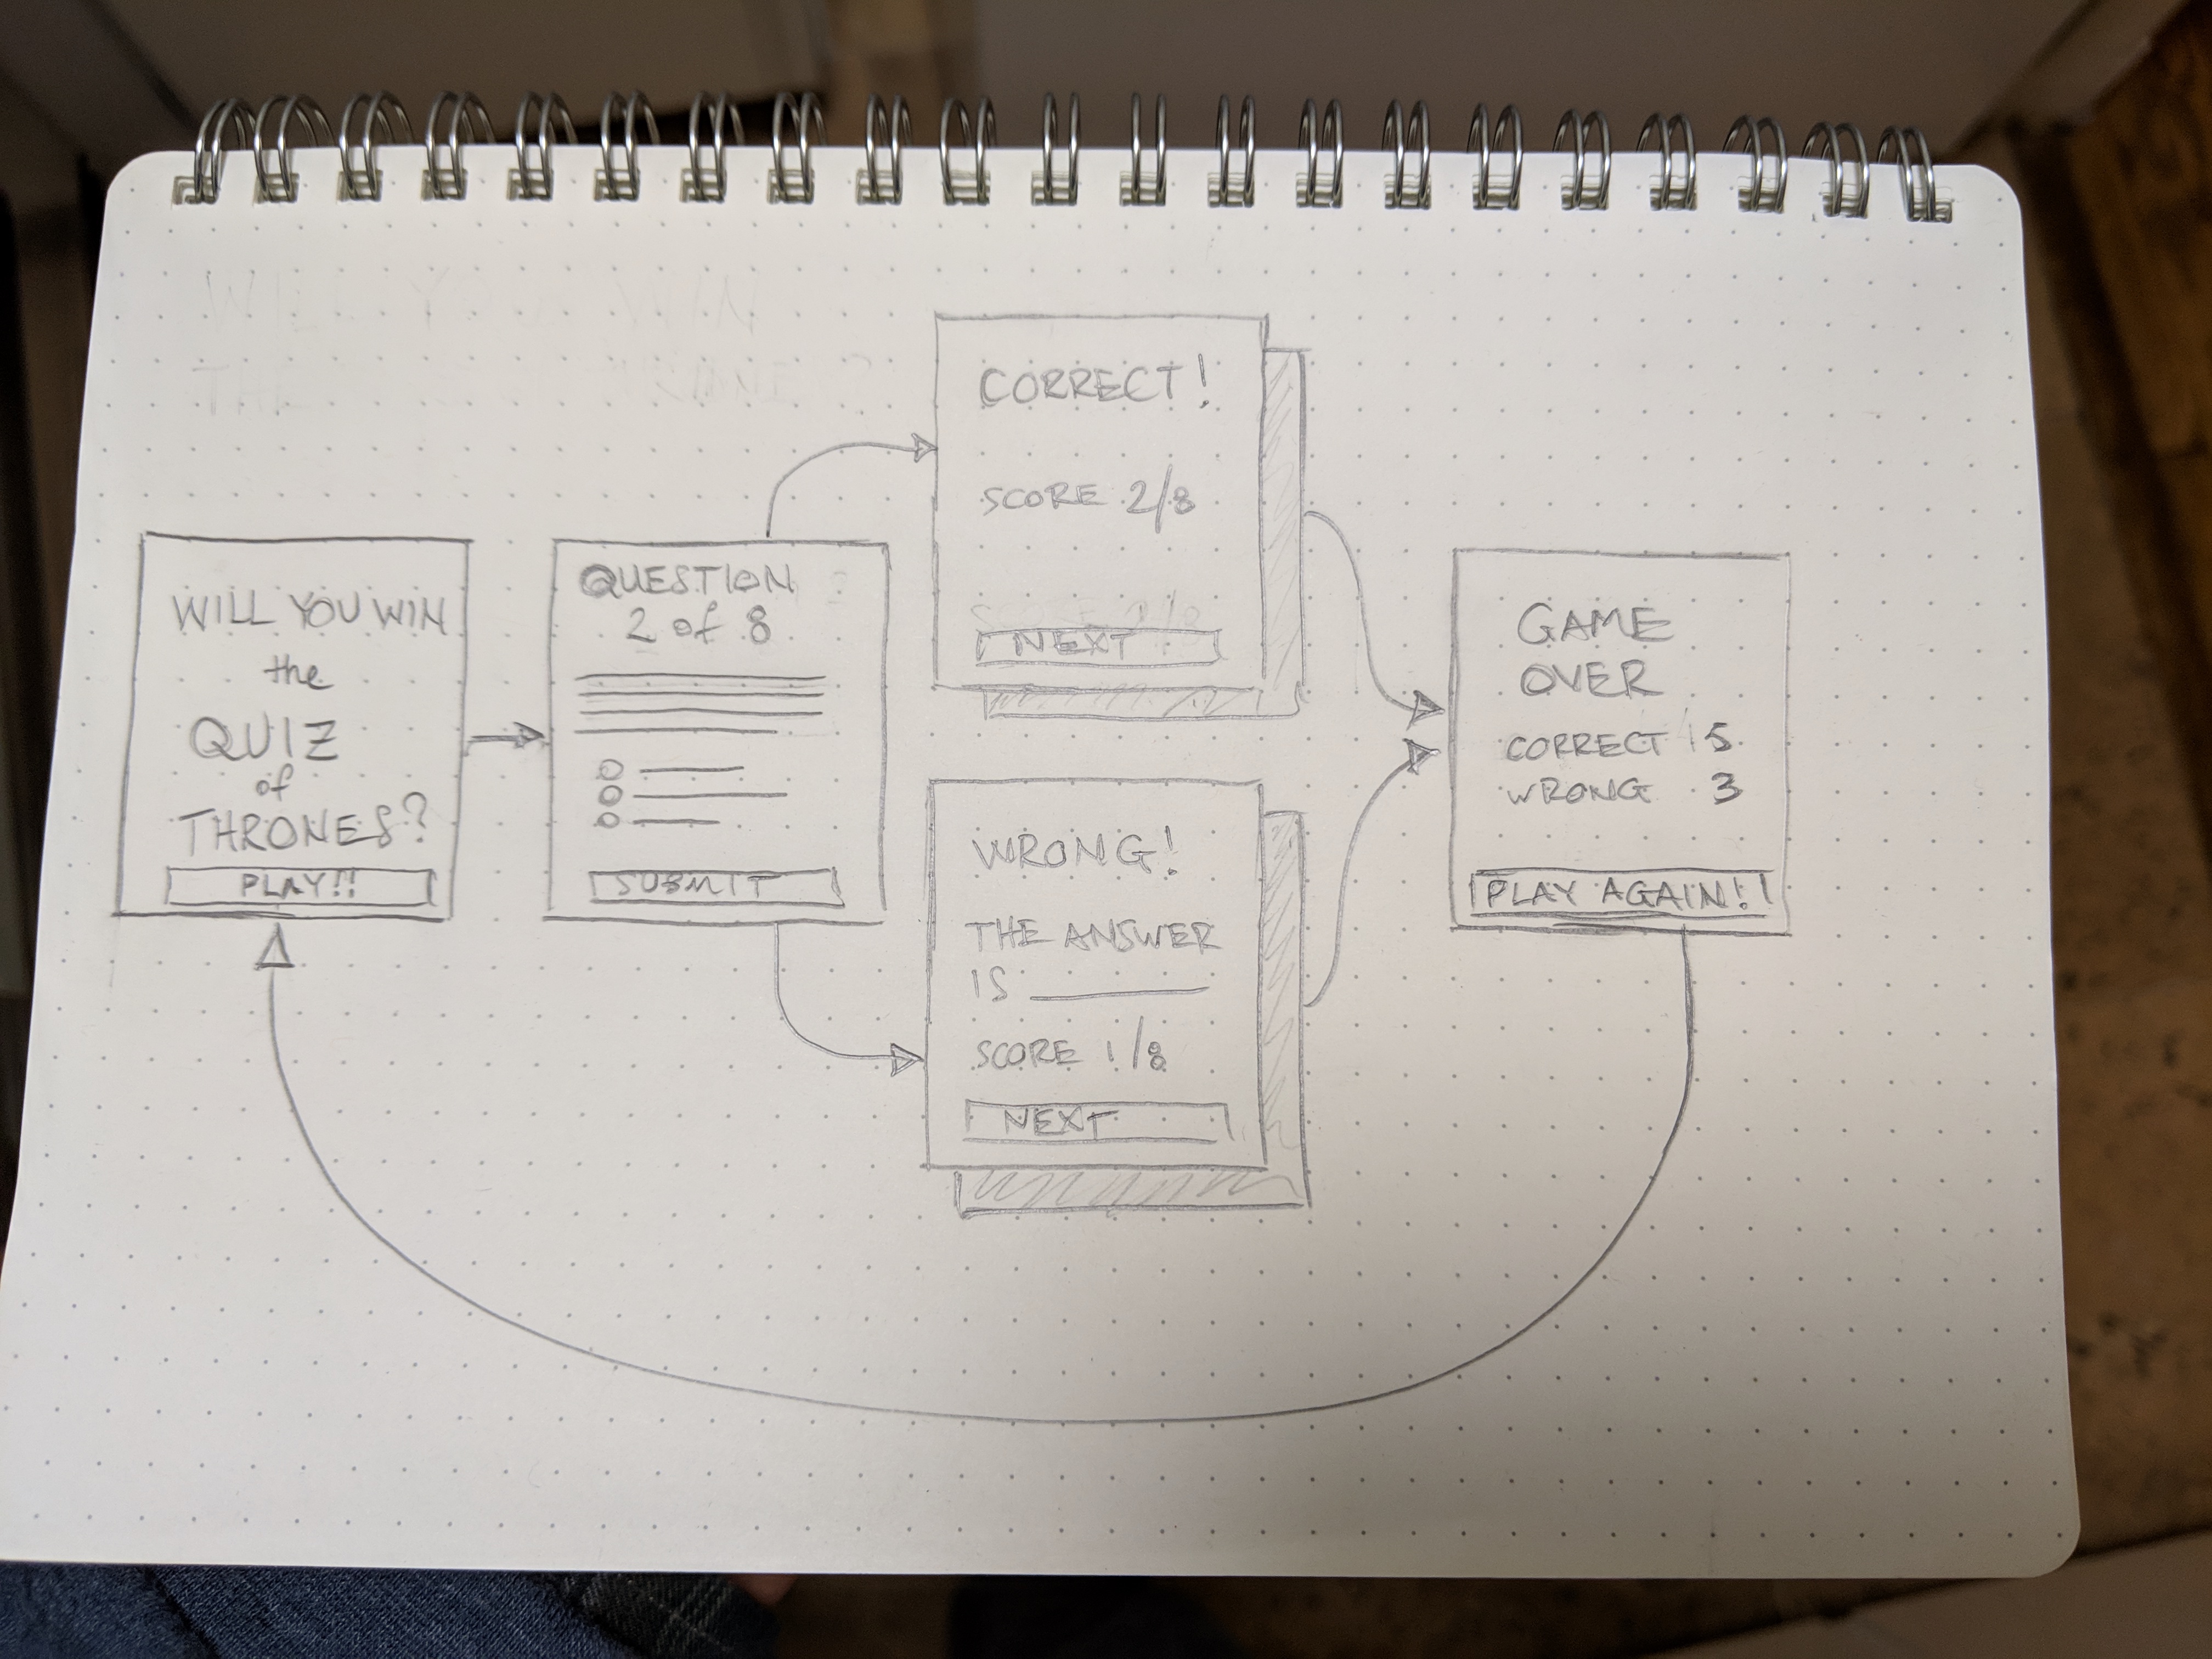 WILL YOU WIN
the
QUIZ
of
THRONES?
PLAY!!
QUESTION
2 of 8
SUBMIT
CORRECT!
SCORE 2/8
NEXT
WRONG!
THE ANSWER
IS
SCORE 1/8
NEXT
GAME
OVER
CORRECT 5
WRONG 3
PLAY AGAIN!